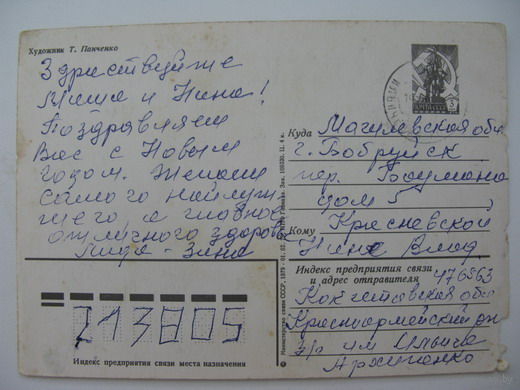 Художник Т. Панченко
Здраствуйте
Миша и Нина!
Поздравляем
Вас с Новым
годом. Желаем
самого наилуч-
шего, а главное
отличного здоровь
Лида - Зина
Куда Магилевская обл
г. Бобруйск
пер. Баумана
дом 5
Кому Красневской
Нине Влад
Индекс предприятия связи
и адрес отправителя 476563
Кокчетавская обл
Красноармейский рн
з/с им Ильича
Архипенко
213805
Индекс предприятия связи места назначения